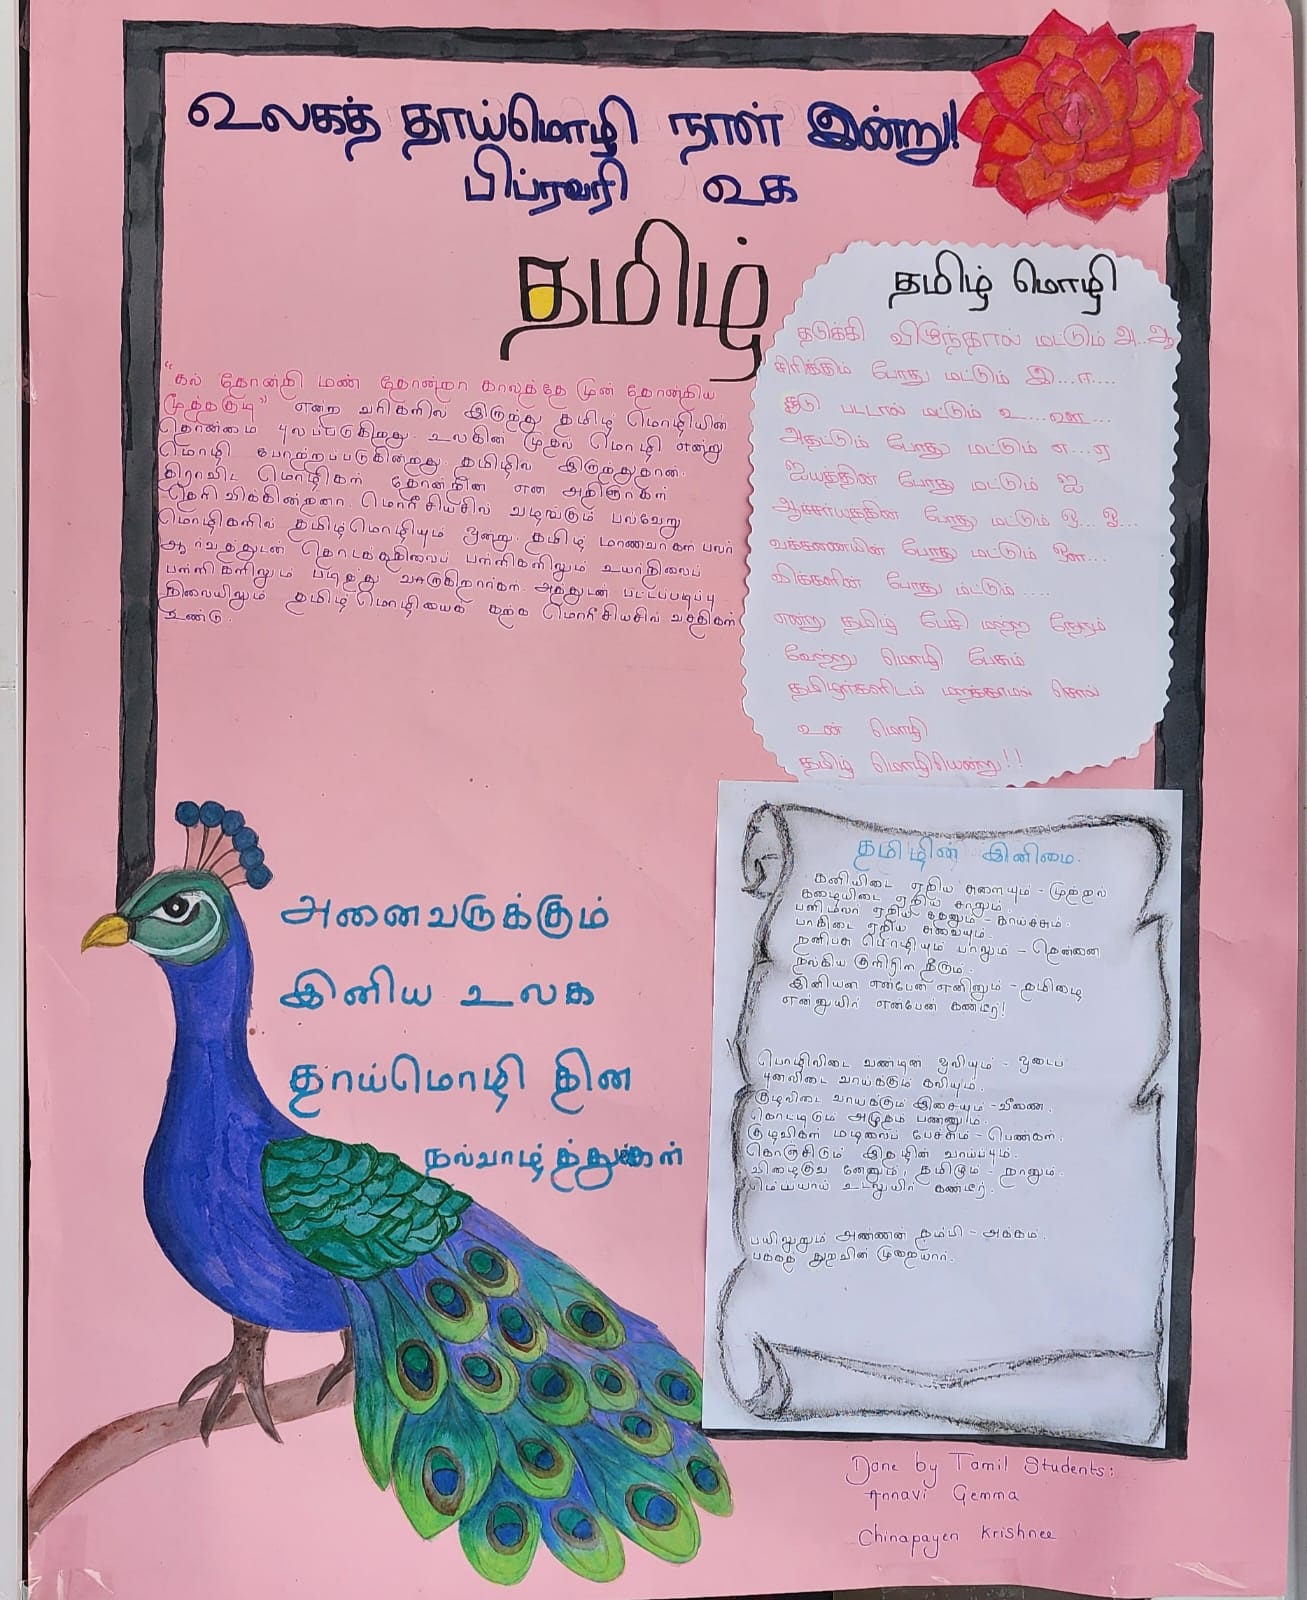 உலகத் தாய்மொழி நாள் இன்று!
பிப்ரவரி உக
தமிழ்
"கல் தோன்றி மண் தோன்றா காலத்தே முன் தோன்றிய
மூத்தகுடி" என்ற வரிகளில் இருந்து தமிழ் மொழியின்
தொன்மை புலப்படுகிறது. உலகின் முதல் மொழி என்று
மொழி போற்றப்படுகின்றது. தமிழில் இருந்துதான்
திராவிட மொழிகள் தோன்றின என அறிஞர்கள்
தெரிவிக்கின்றனர். மொரீசியசில் வழங்கும் பல்வேறு
மொழிகளில் தமிழ்மொழியும் ஒன்று. தமிழ் மாணவர்கள் பலர்
ஆர்வத்துடன் தொடக்கநிலைப் பள்ளிகளிலும் உயர்நிலைப்
பள்ளிகளிலும் படித்து வருகிறார்கள். அத்துடன் பட்டப்படிப்பு
நிலையிலும் தமிழ்மொழியைக் கற்க மொரீசியசில் வசதிகள்
உண்டு.
தமிழ் மொழி
தடுக்கி விழுந்தால் மட்டும் அ...ஆ
சிரிக்கும் போது மட்டும் இ...ஈ....
சூடு பட்டால் மட்டும் உ...ஊ....
அதட்டும் போது மட்டும் எ...ஏ
ஐயத்தின் போது மட்டும் ஐ
ஆச்சர்யத்தின் போது மட்டும் ஒ... ஓ...
வக்கணையின் போது மட்டும் ஔ....
விக்கலின் போது மட்டும் ....
என்று தமிழ் பேசி மற்ற நேரம்
வேற்று மொழி பேசும்
தமிழர்களிடம் மறக்காமல் சொல்
உன் மொழி
தமிழ் மொழியென்று!!
தமிழின் இனிமை.
கனியிடை ஏறிய சுளையும் - முற்றல்
கழையிடை ஏறிய சாறும்,
பனிமலர் ஏறிய தேனும் - காய்ச்சும்
பாகிடை ஏறிய சுவையும்,
நனிபசு பொழியும் பாலும் - தென்னை
நல்கிய குளிரிள நீரும்,
இனியன என்பேன் எனினும் - தமிழை
என்னுயிர் என்பேன் கண்டீர்!
பொழிலிடை வண்டின் ஒலியும் - ஓடைப்
புனலிடை வாய்க்கும் கலியும்,
குழலிடை வாய்க்கும் இசையும் - வீணை
கொட்டிடும் அமுதப் பண்ணும்,
குழவிகள் மழலைப் பேச்சும் - பெண்கள்
கொஞ்சிடும் இதழின் வாய்ப்பும்,
விழைகுவ னேனும், தமிழும் - நானும்
மெய்யாய் உடலுயிர் கண்டீர்.
பயிலுறும் அண்ணன் தம்பி - அக்கம்
பக்கத் துறவின் முறையார்,
அனைவருக்கும்
இனிய உலக
தாய்மொழி தின
நல்வாழ்த்துகள்
Done by Tamil Students:
Annavi Gemma
Chinapayen Krishnee